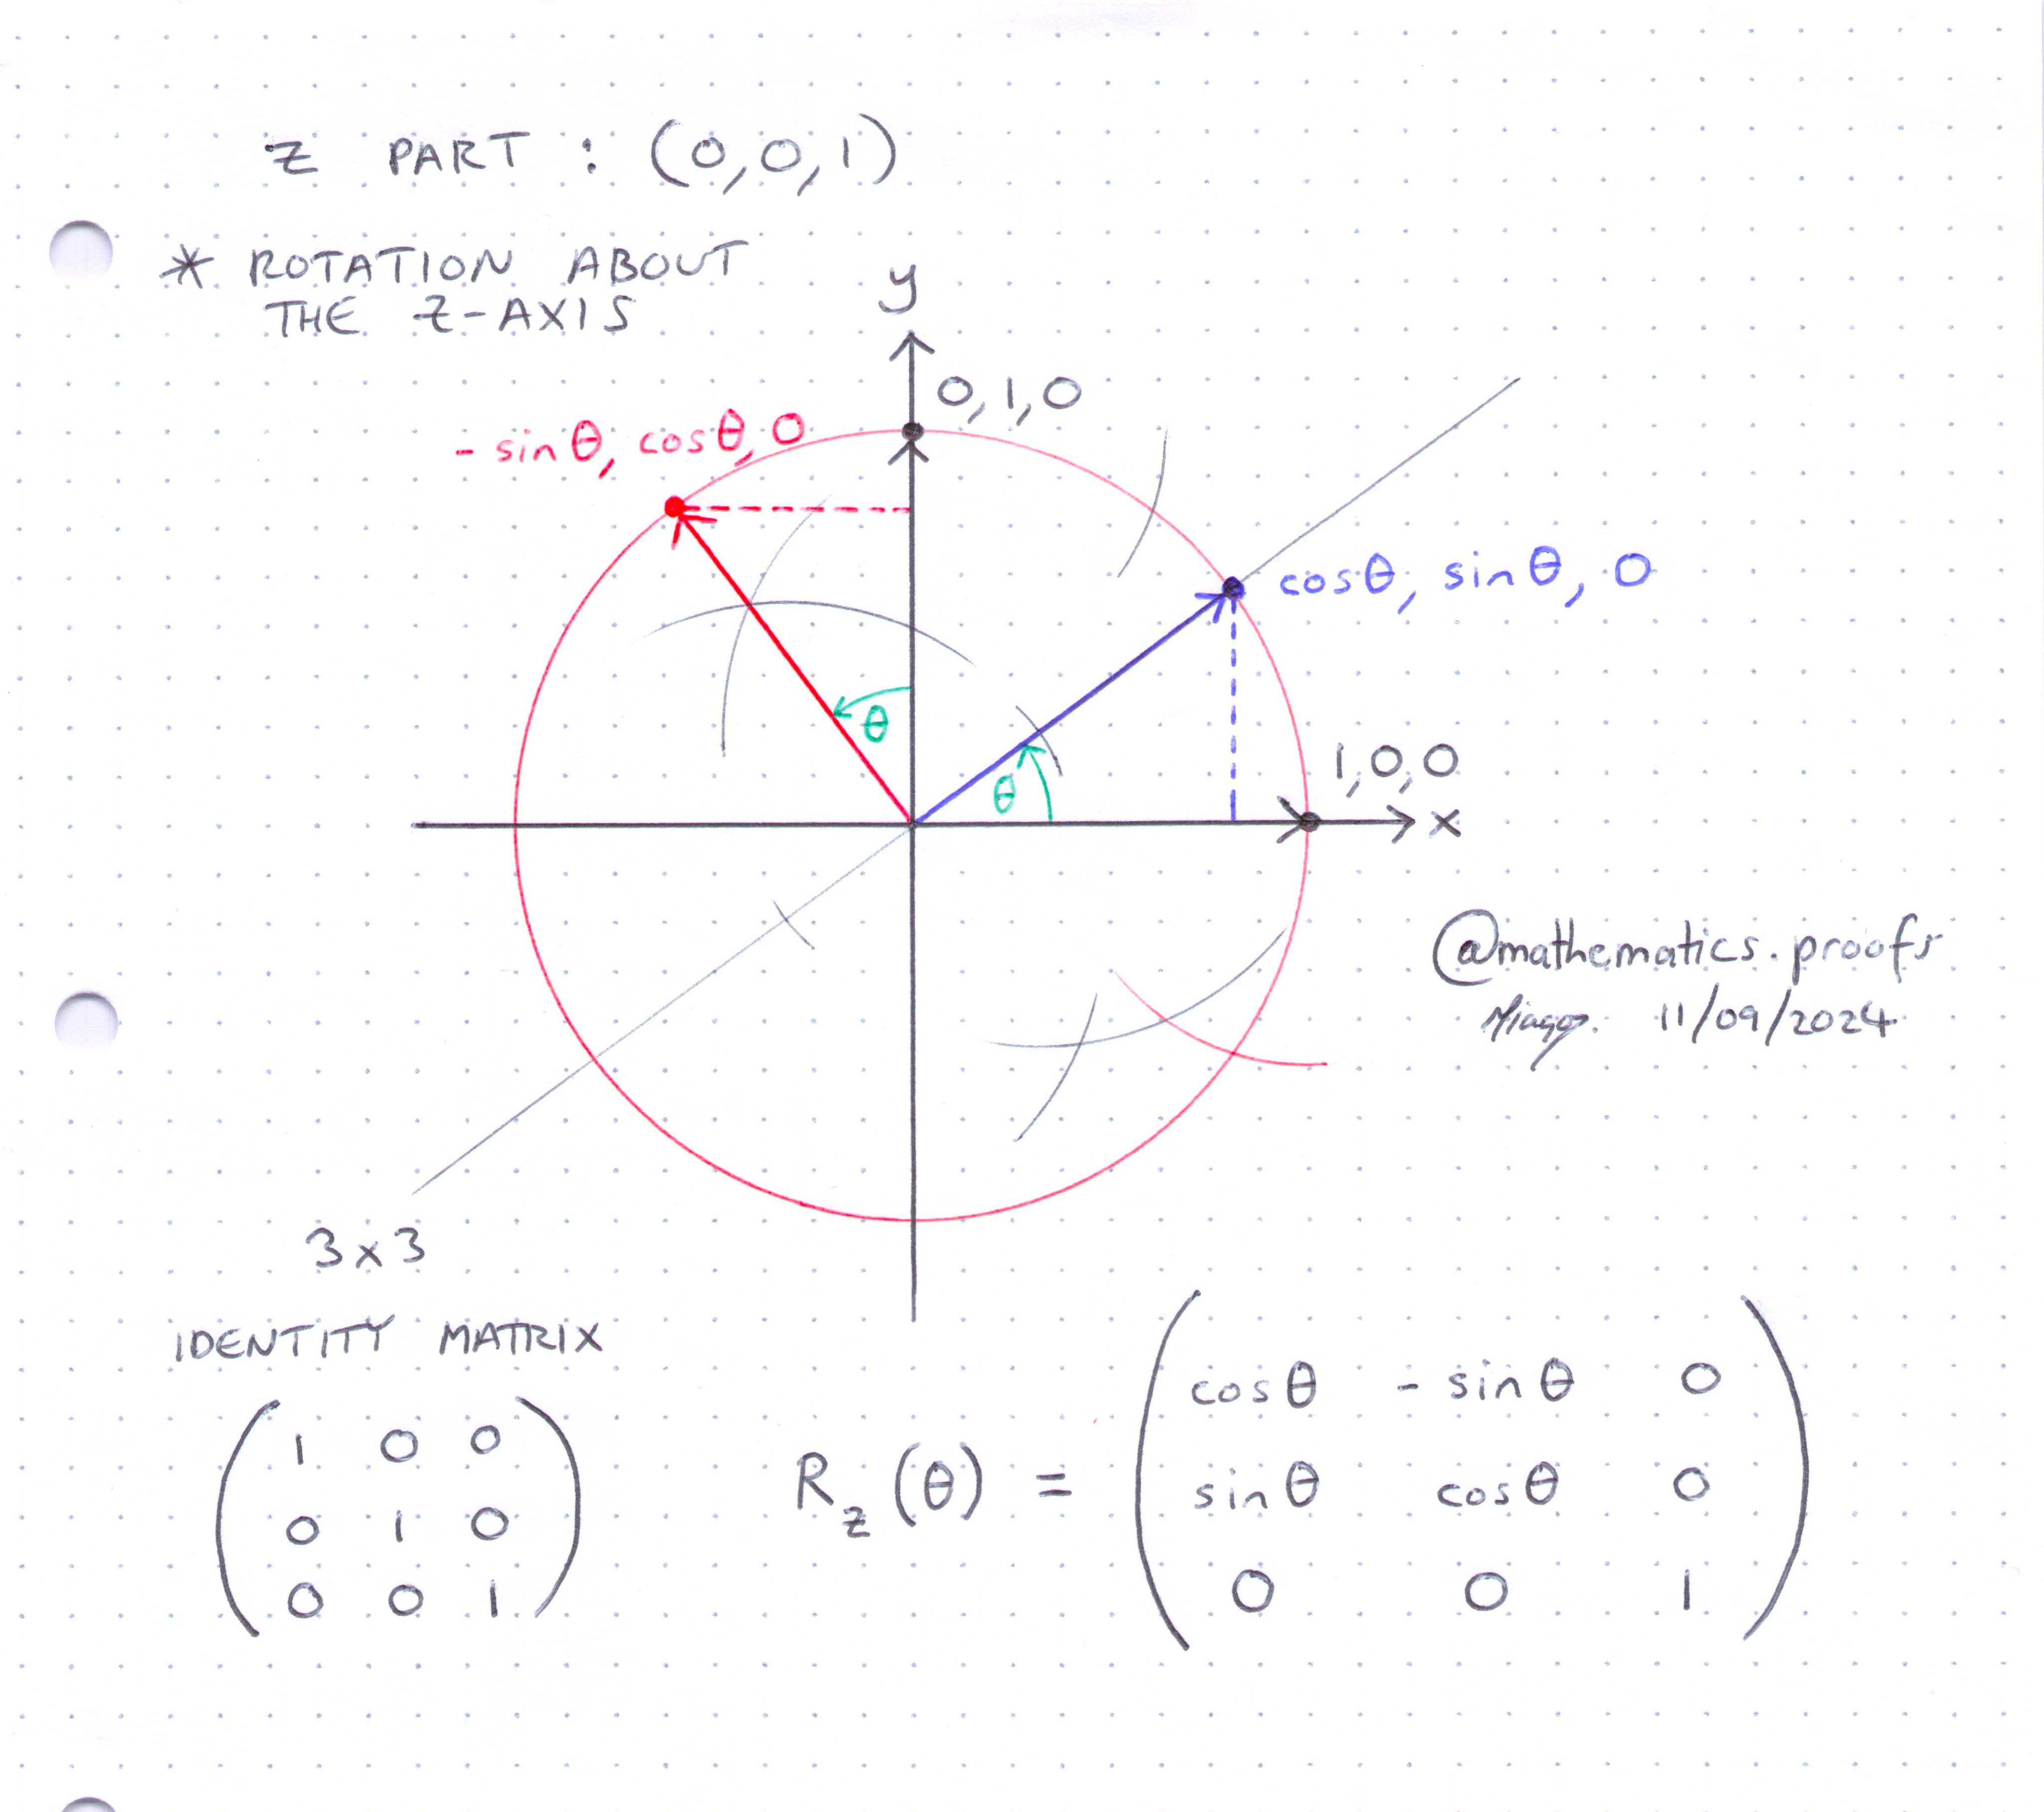 z PART : (0,0,1)
* ROTATION ABOUT
THE Z-AXIS
y
0,1,0
- sinθ, cosθ, 0
cosθ, sinθ, 0
θ
θ
1,0,0
x
@mathematics.proofs
11/09/2024
3x3
IDENTITY MATRIX
1 0 0
0 1 0
0 0 1
cosθ - sinθ 0
R_z (θ) = sinθ cosθ 0
0 0 1